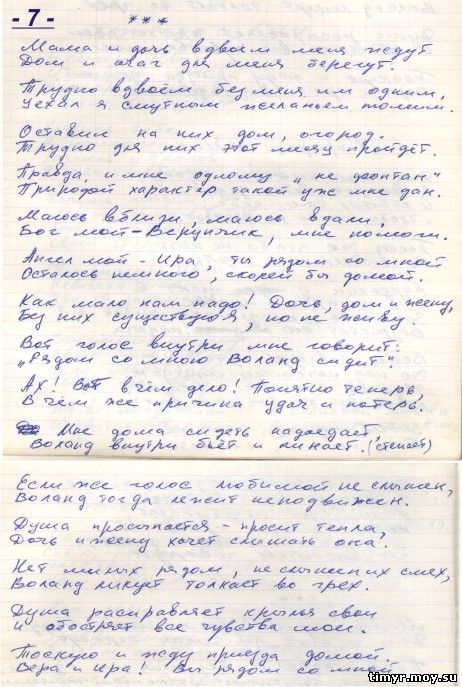 - 7 -
***
Мама и дочь вдвоём меня ждут
Дом и очаг для меня берегут.
Трудно вдвоём без меня им одним,
Уехал я смутным желаньем томим.
Оставил на них дом, огород.
Трудно для них этот месяц пройдёт.
Правда, и мне одному „не фонтан"
Природой характер такой уже мне дан.
Маюсь вблизи, маюсь вдали,
Бог мой - Верунчик, мне помоги.
Ангел мой - Ира, ты рядом со мной
Осталось немного, скорей бы домой.
Как мало нам надо! Дочь, дом и жену,
Без них существую я, но не живу.
Вот голос внутри мне говорит:
„Рядом со мною Воланд сидит".
Ах! Вот в чём дело! Понятно теперь,
В чём же причина удач и потерь.
Мне дома сидеть надоедает,
Воланд внутри бьёт и пинает. (стенает)
Если же голос любимой не слышен,
Воланд тогда лежит неподвижен.
Душа просыпается - просит тепла,
Дочь и жену хочет слышать она.
Нет милых рядом, не слышен их смех,
Воланд ликует толкает во грех.
Душа расправляет крылья свои
и обостряет все чувства мои.
Тоскую и жду приезда домой
Вера и Ира! Вы рядом со мной
timyr.moy.su